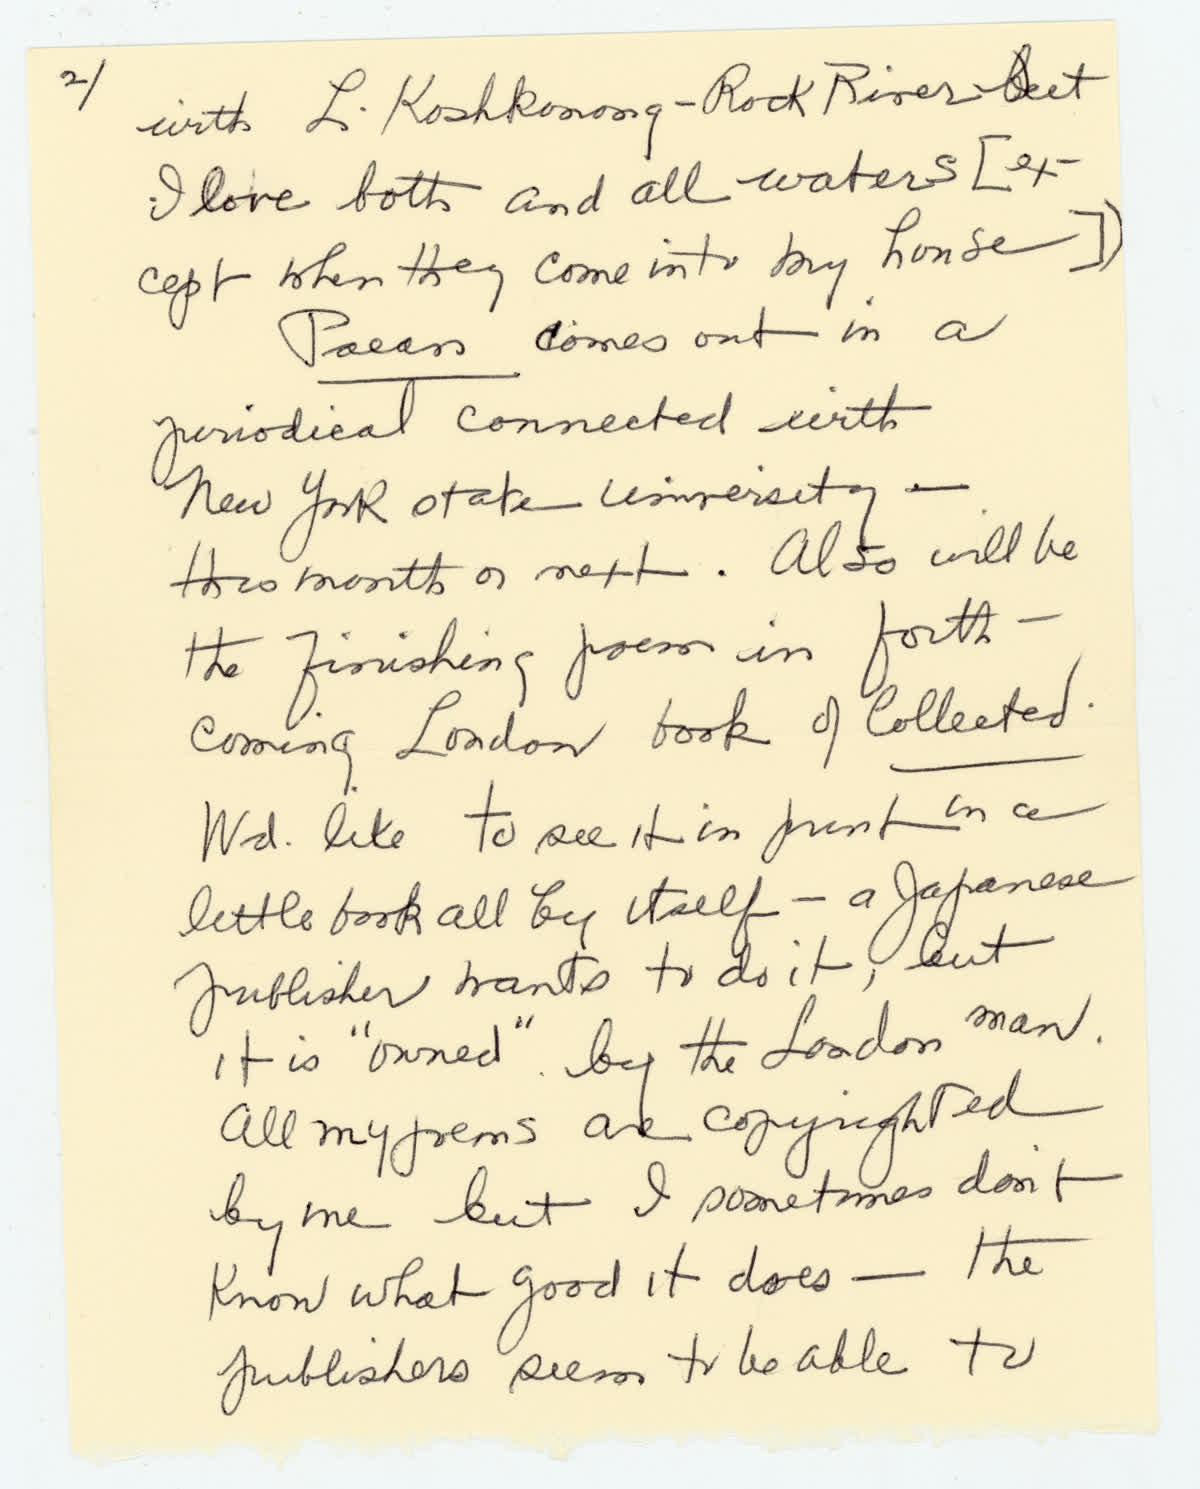 2/
with L. Koshkonong - Rock River - but
I love both and all waters [ex-
cept when they come into my house])
Paean comes out in a
periodical connected with
New York state university —
this month or next. Also will be
the finishing poem in forth-
coming London book of Collected.
Wd. like to see it in print in a
little book all by itself — a Japanese
publisher wants to do it, but
it is "owned" by the London man.
All my poems are copyrighted
by me but I sometimes don't
know what good it does — the
publishers seem to be able to